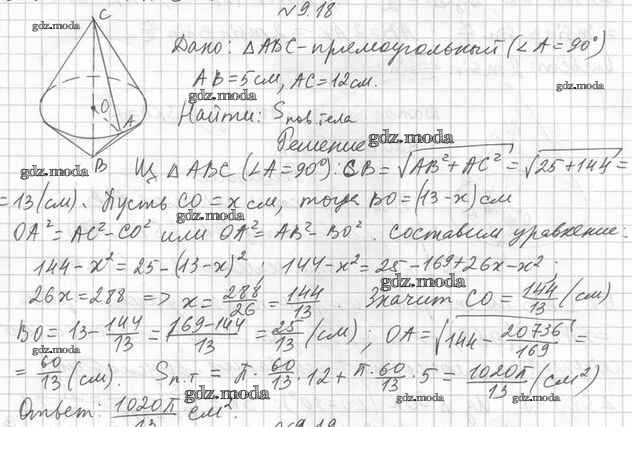 №9.18
C
gdz.moda
Дано: △ABC - прямоугольный (∠A = 90°)
AB = 5 см, AC = 12 см.
gdz.moda
gdz.moda
Найти: Sпов.тела
O
A
B
Решение
gdz.moda
gdz.moda
Из △ABC (∠A = 90°): CB = √AB² + AC² = √25 + 144 =
= 13 (см). Пусть CO = x см, тогда BO = (13 - x) см
gdz.moda
OA² = AC² - CO² или OA² = AB² - BO². Составим уравнение:
144 - x² = 25 - (13 - x)²; 144 - x² = 25 - 169 + 26x - x²;
gdz.moda
26x = 288 => x = 288/26 = 144/13. Значит CO = 144/13 (см)
gdz.moda
BO = 13 - 144/13 = 169 - 144/13 = 25/13 (см); OA = √144 - 20736/169 =
gdz.moda
= 60/13 (см). Sп.т = π · 60/13 · 12 + π · 60/13 · 5 = 1020π/13 (см²)
gdz.moda
gdz.moda
gdz.moda
Ответ: 1020π/13 см².